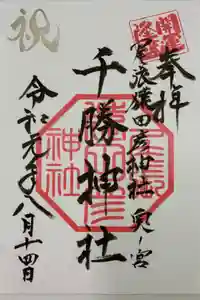 奉拝
開運
猿田彦神社 奥ノ宮
千勝神社
令和元年八月十四日
祝
神社